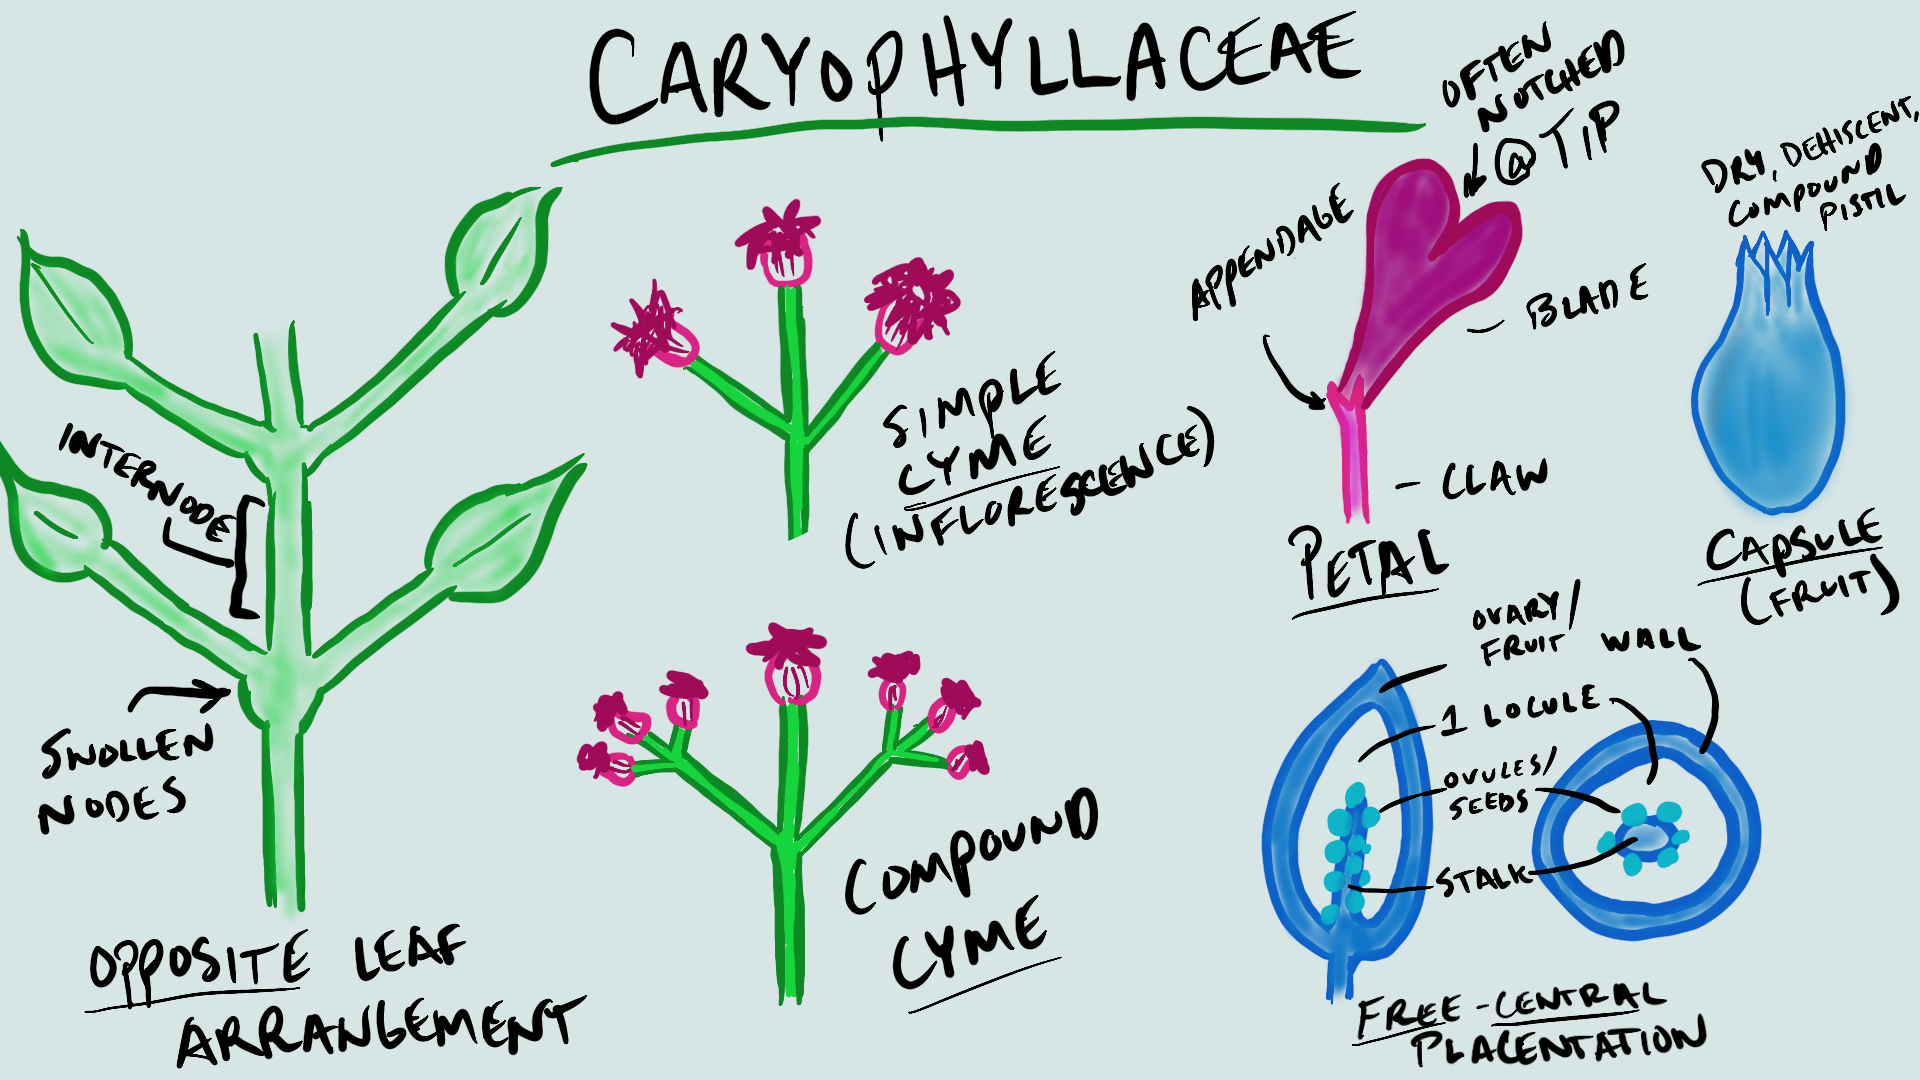 CARYOPHYLLACEAE
INTERNODE
SWOLLEN
NODES
OPPOSITE LEAF
ARRANGEMENT
SIMPLE
CYME
(INFLORESCENCE)
COMPOUND
CYME
OFTEN
NOTCHED
@ TIP
APPENDAGE
BLADE
CLAW
PETAL
DRY, DEHISCENT,
COMPOUND
PISTIL
CAPSULE
(FRUIT)
OVARY/
FRUIT WALL
1 LOCULE
OVULES/
SEEDS
STALK
FREE-CENTRAL
PLACENTATION